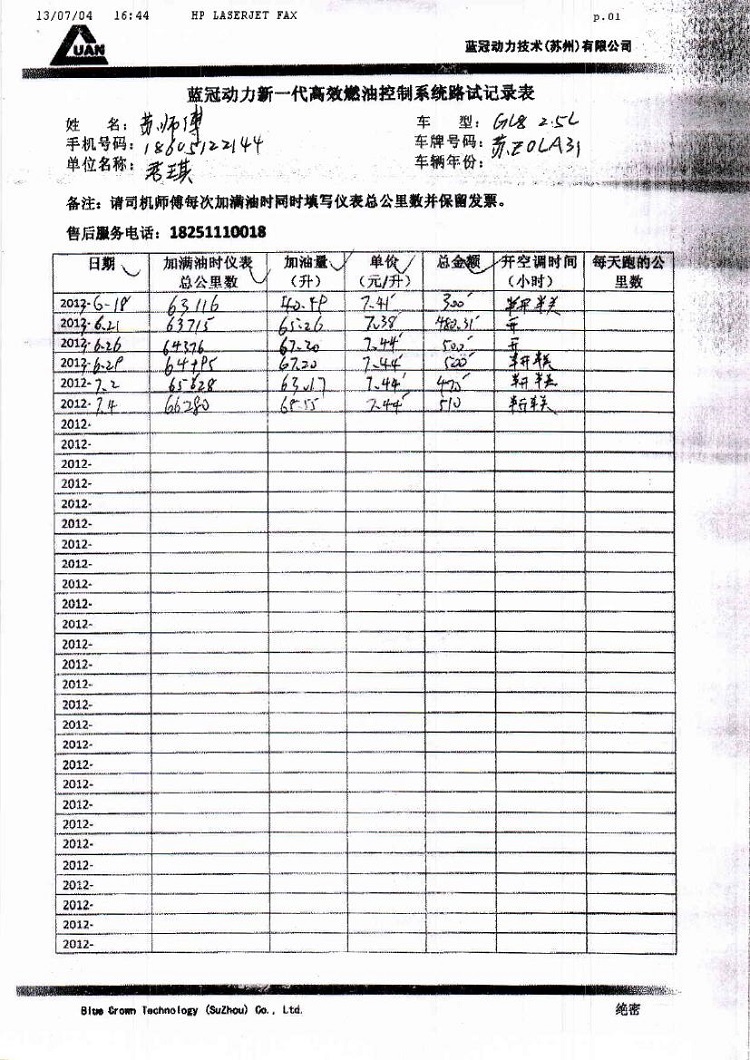 13/07/04 16:44 HP LASERJET FAX p.01
LUAN
蓝冠动力技术(苏州)有限公司
蓝冠动力新一代高效燃油控制系统路试记录表
姓 名: 苏师傅 车 型: GL8 2.5L
手机号码: 18605122144 车牌号码: 苏E0LA31
单位名称: 车辆年份:
备注: 请司机师傅每次加满油时同时填写仪表总公里数并保留发票。
售后服务电话: 18251110018
日期 加满油时仪表总公里数 加油量(升) 单价(元/升) 总金额 开空调时间(小时) 每天跑的公里数
2013-6-18 63116 40.49 7.41 300 半开半关
2013-6.21 63715 65.26 7.38 480.31 开
2013-6.26 64376 67.20 7.44 500 开
2013-6.29 67.20 7.44 500 半开半关
2012-7.2 65628 63.17 7.44 470 半开半关
2012-7.4 66280 68.55 7.44 510 半开半关
2012-
2012-
2012-
2012-
2012-
2012-
2012-
2012-
2012-
2012-
2012-
2012-
2012-
2012-
2012-
2012-
2012-
2012-
2012-
2012-
2012-
2012-
2012-
2012-
2012-
2012-
2012-
Blue Crown Technology (SuZhou) Co., Ltd. 绝密